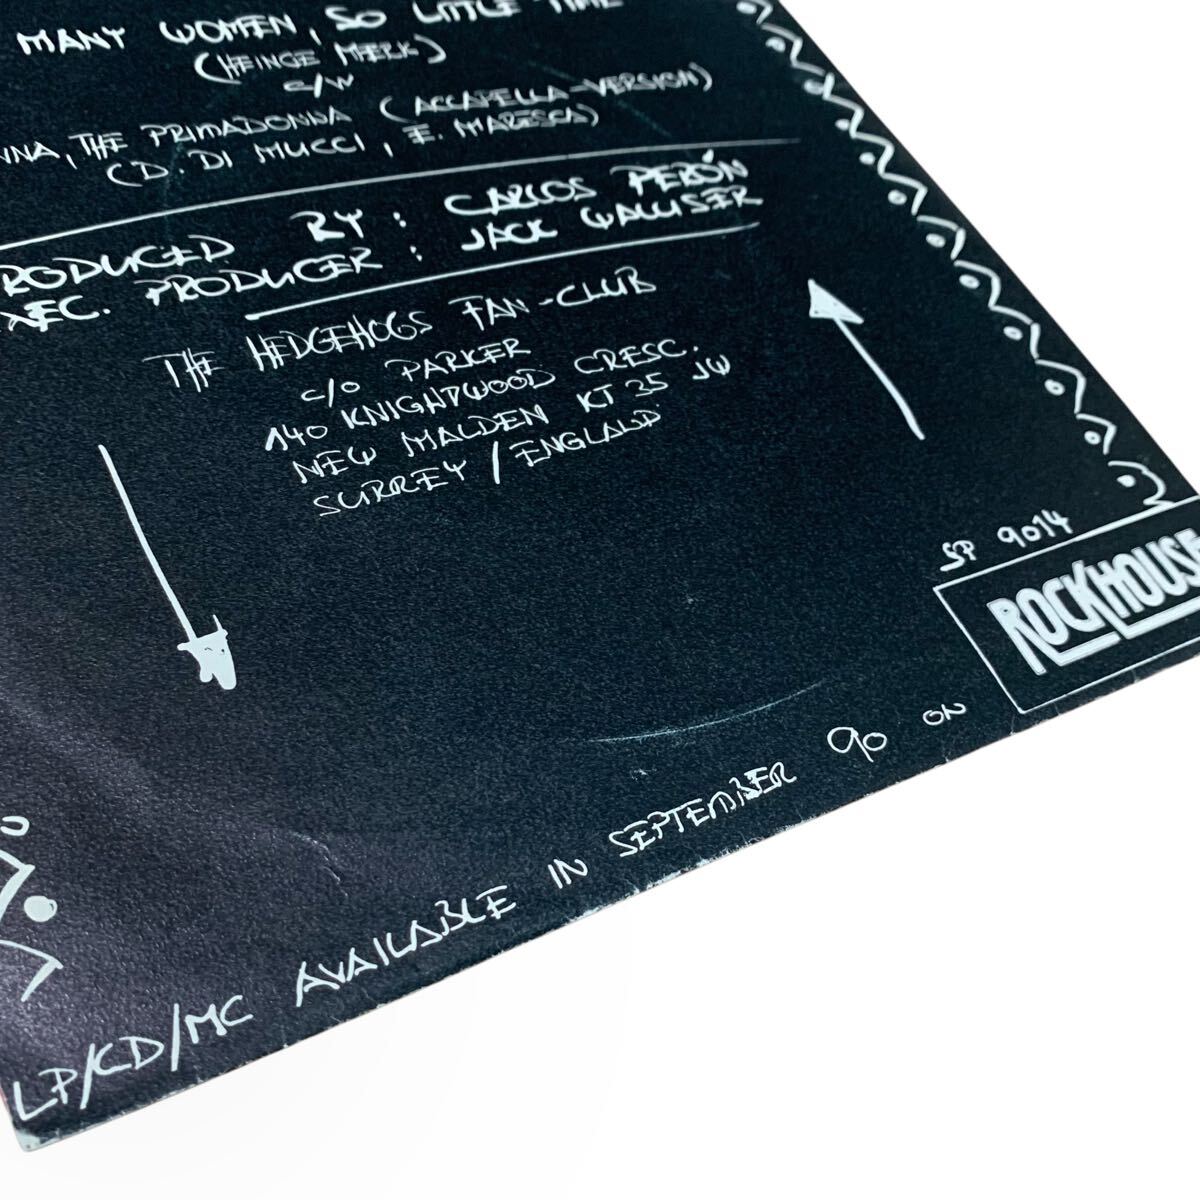 MANY WOMEN, SO LITTLE TIME
(HEINGE MERK)
C/W
NNA, THE PRIMADONNA (ACCAPELLA-VERSION)
(D. DI MUCCI, E. MARESCA)
RODUCED BY: CARLOS PERÓN
XEC. PRODUCER: JACK WALLISER
THE HEDGEHOGS FAN-CLUB
C/O PARKER
140 KNIGHTWOOD CRESC.
NEW MALDEN KT 35 JW
SURREY / ENGLAND
SP 9014
ROCKHOUSE
LP/CD/MC AVAILABLE IN SEPTEMBER 90 ON